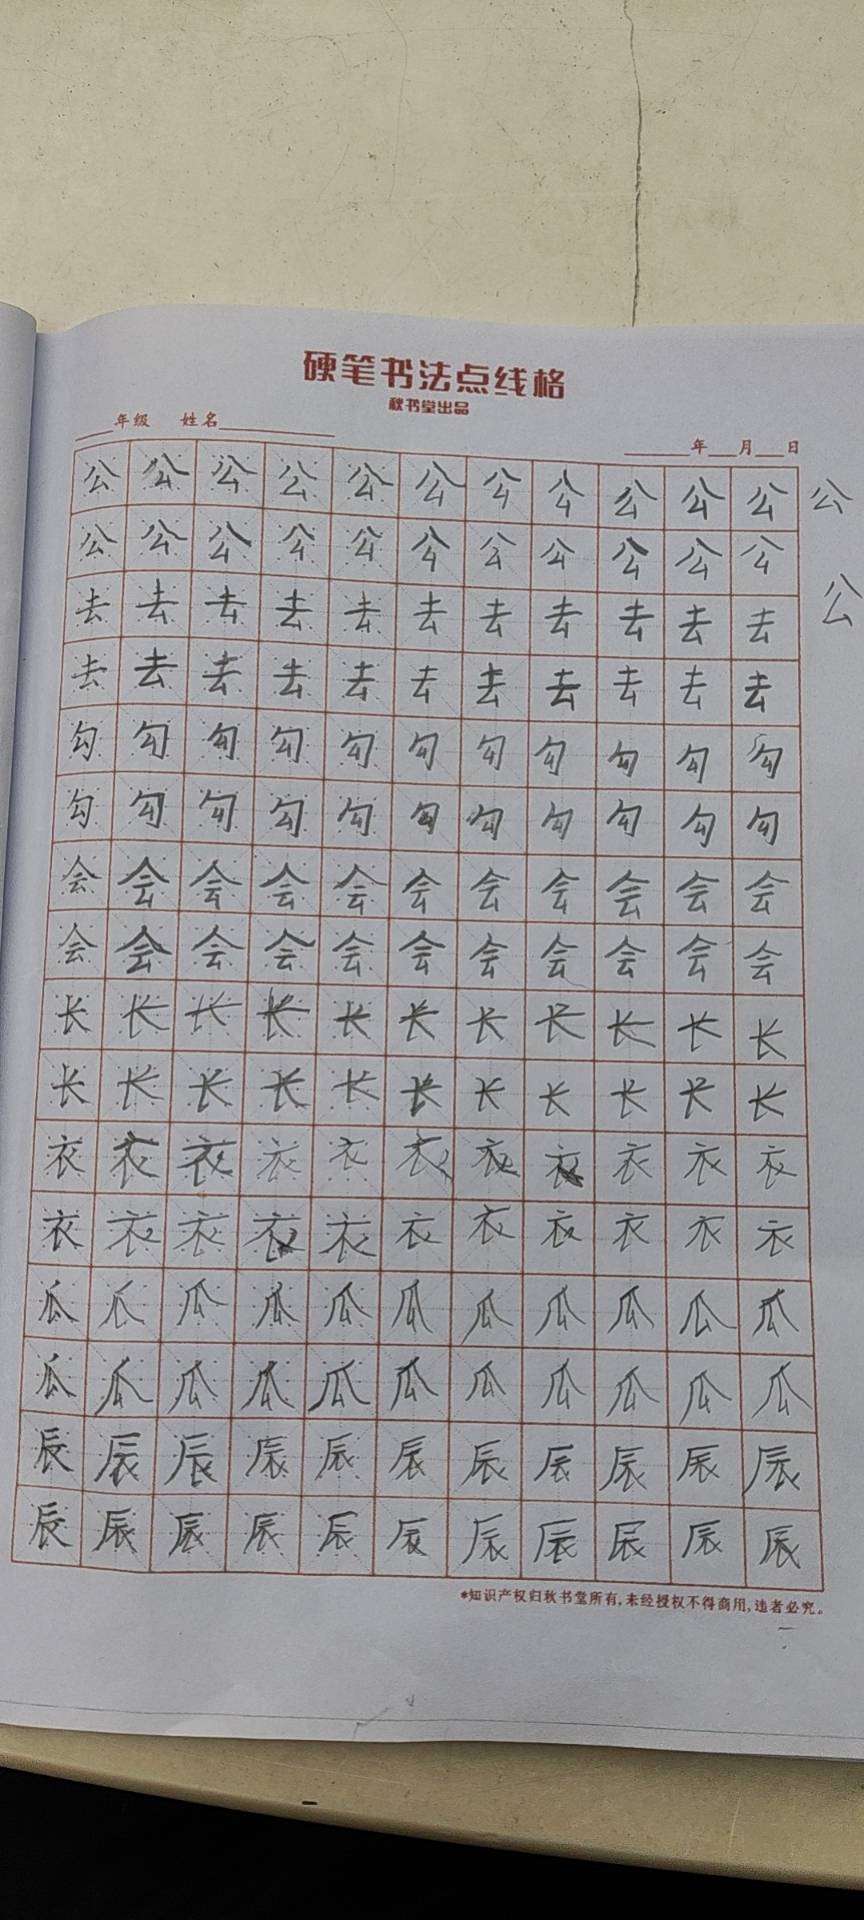 硬笔书法点线格
秋书堂出品
年级 姓名 年 月 日
公公公公公公公公公公公 公
公公公公公公公公公公公
公
去去去去去去去去去去去
去去去去去去去去去去去
勾勾勾勾勾勾勾勾勾勾勾
勾勾勾勾勾勾勾勾勾勾勾
会会会会会会会会会会会
会会会会会会会会会会会
长长长长长长长长长长长
长长长长长长长长长长长
衣衣衣衣衣衣衣衣衣衣衣
衣衣衣衣衣衣衣衣衣衣衣
瓜瓜瓜瓜瓜瓜瓜瓜瓜瓜瓜
瓜瓜瓜瓜瓜瓜瓜瓜瓜瓜瓜
辰辰辰辰辰辰辰辰辰辰辰
辰辰辰辰辰辰辰辰辰辰辰
*知识产权归秋书堂所有,未经授权不得商用,违者必究。